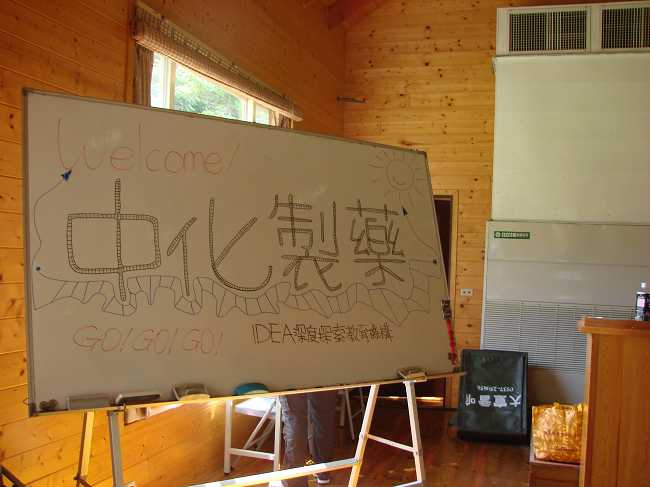 Welcome!
中化製藥
GO! GO! GO!
IDEA深度探索教育機構